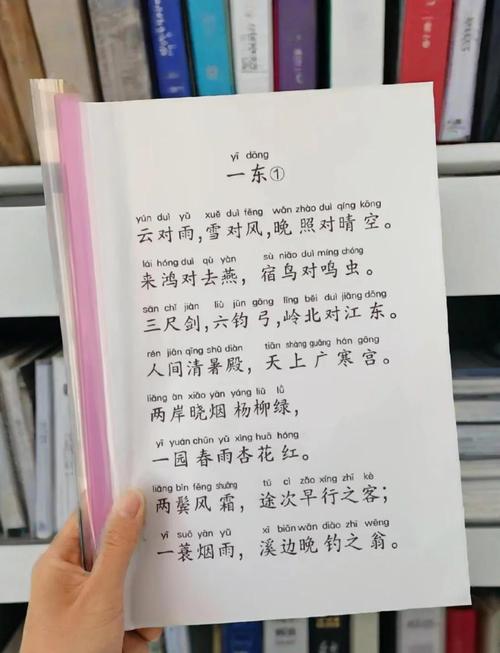 yī dōng
一东①
yún duì yǔ xuě duì fēng wǎn zhào duì qíng kōng
云对雨,雪对风,晚照对晴空。
lái hóng duì qù yàn sù niǎo duì míng chóng
来鸿对去燕，宿鸟对鸣虫。
sān chǐ jiàn liù jūn gōng lǐng běi duì jiāng dōng
三尺剑,六钧弓,岭北对江东。
rén jiān qīng shǔ diàn tiān shàng guǎng hán gōng
人间清暑殿，天上广寒宫。
liǎng àn xiǎo yān yáng liǔ lǜ
两岸晓烟杨柳绿，
yī yuán chūn yǔ xìng huā hóng
一园春雨杏花红。
liǎng bìn fēng shuāng tú cì zǎo xíng zhī kè
两鬓风霜，途次早行之客；
yī suō yān yǔ xī biān wǎn diào zhī wēng
一蓑烟雨，溪边晚钓之翁。